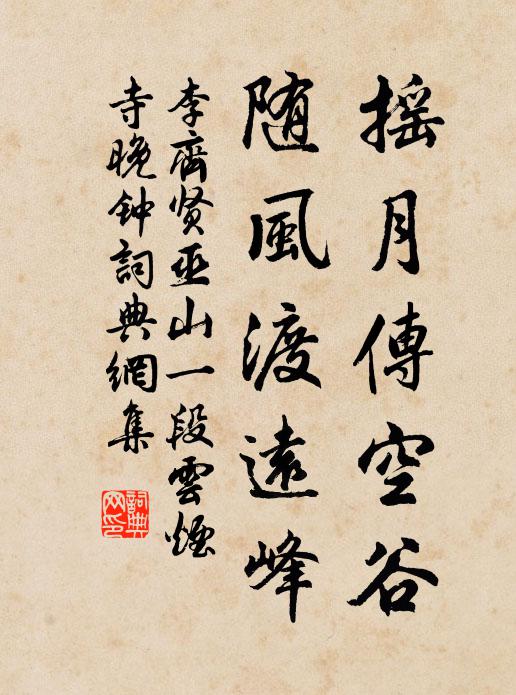 摇月傳空谷
随風渡遠峰
李齊贤巫山一段雲煙
寺晚钟詞典網集
詞典网印